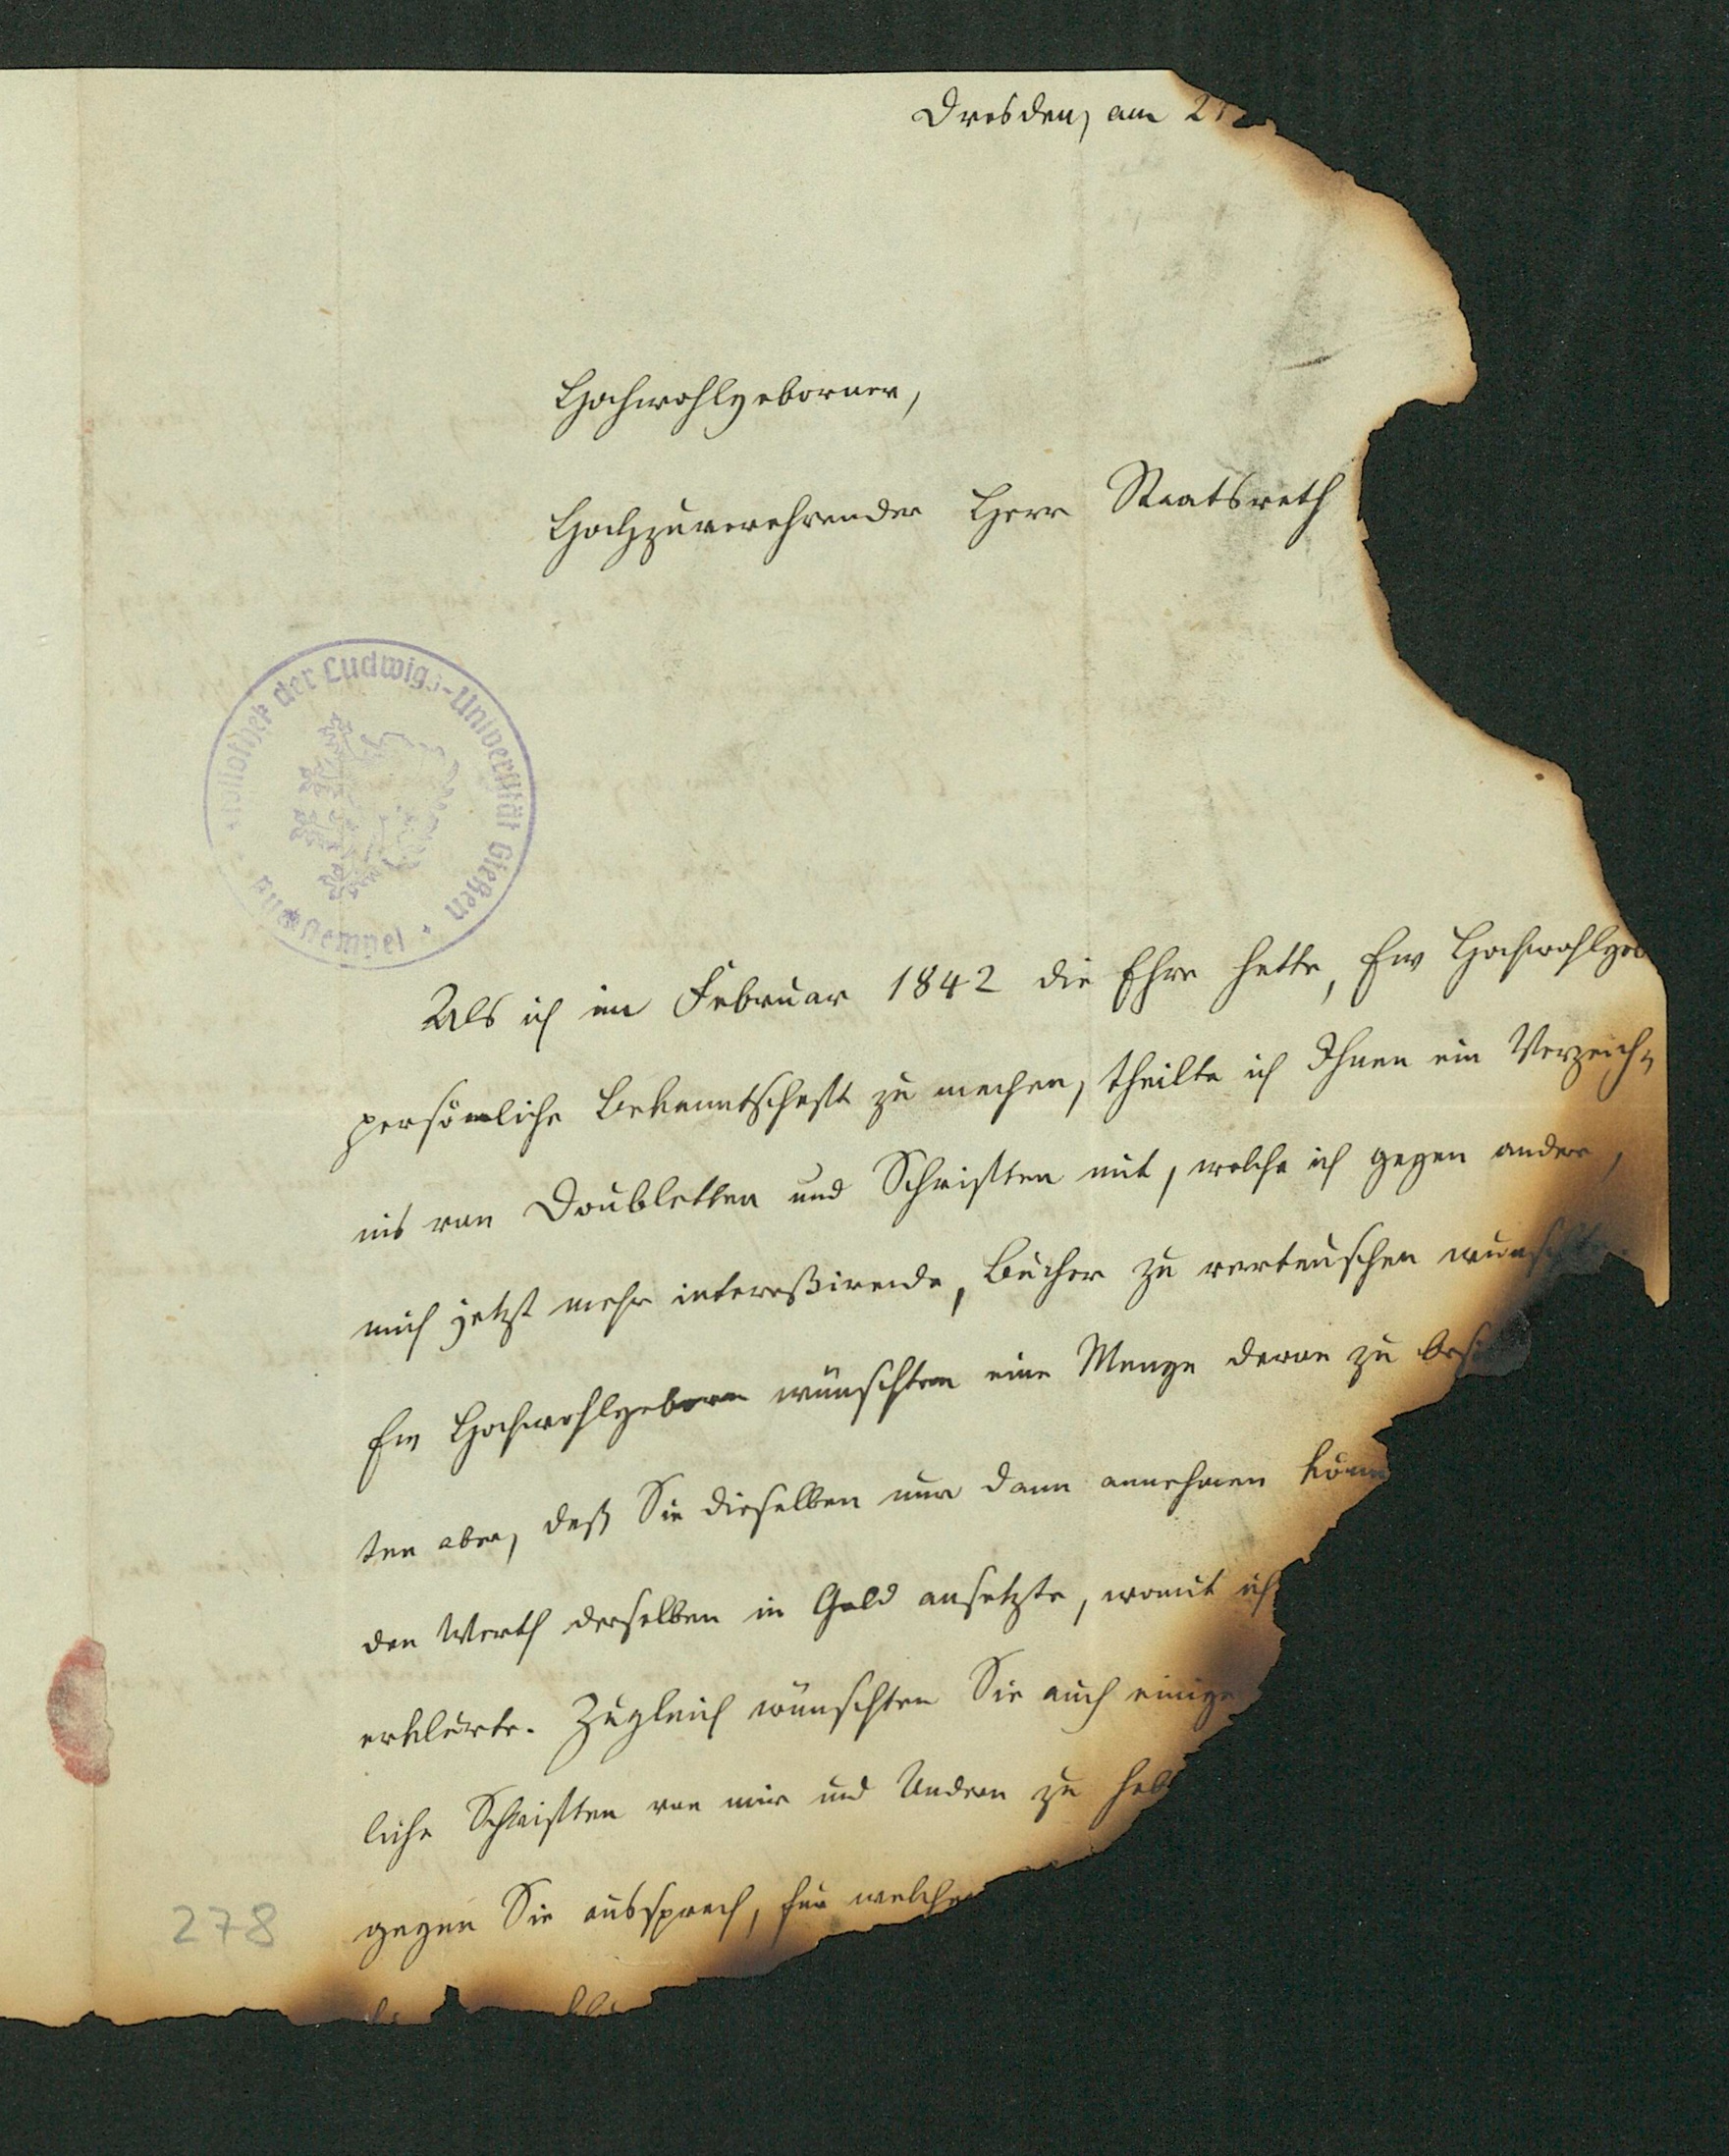 Dresden, am 21
Hochwohlgeborner,
Hochzuverehrender Herr Staatsrath
Bibliothek der Ludwigs-Universität Gießen
Als ich im Februar 1842 die Ehre hatte, Ew Hochwohlgeb
persönliche Bekanntschaft zu machen, theilte ich Ihnen ein Verzeich-
nis von Doubletten und Schriften mit, welche ich gegen andere,
mich jetzt mehr interessirende, Bücher zu vertauschen wünschte.
Ew Hochwohlgeborn wünschten eine Menge davon zu besi
ten aber, daß Sie dieselben nur dann annehmen könn
den Werth derselben in Geld ansetzte, womit ich
erklärte. Zugleich wünschten Sie auch einige
liche Schriften von mir und Andern zu hab
gegen Sie aussprach, für welche
278